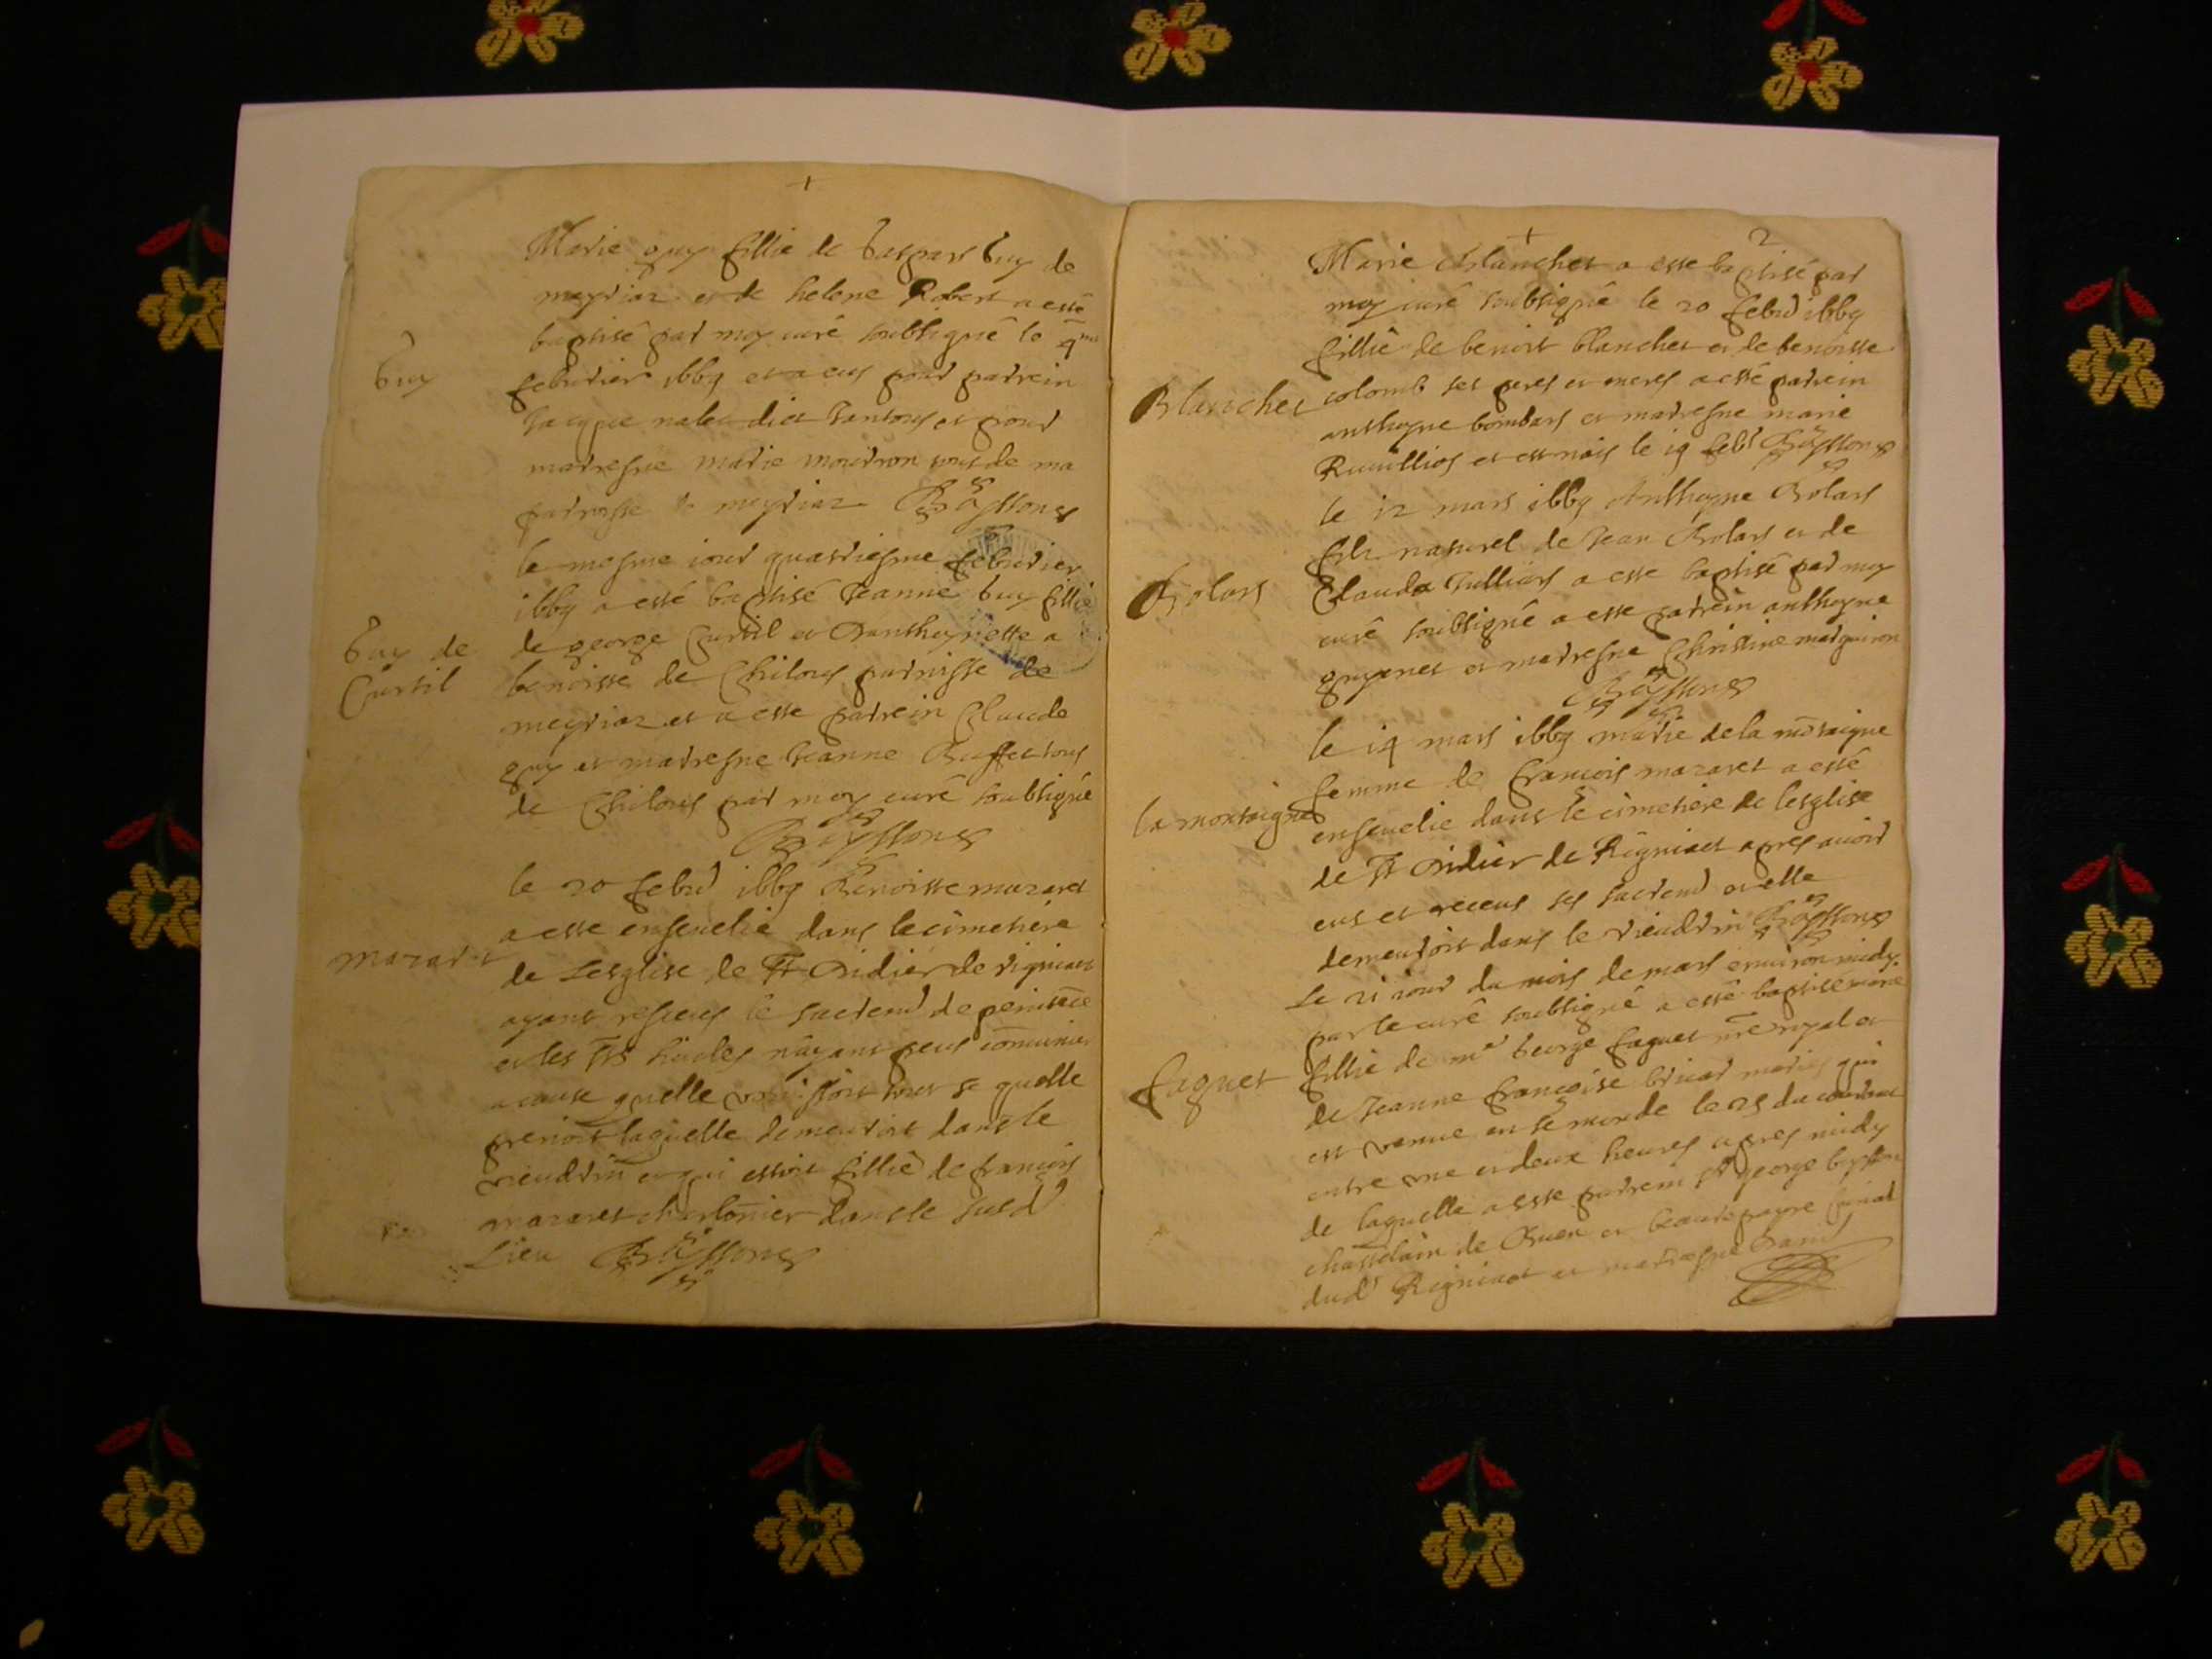 +
Marie guy fillie de gaspard guy de
meyriaz et de helene Robert a esté
baptisé par moy curé soubsigné le 4me
guy
febvrier 1669 et a eus pour parrein
Jacque nalet dict et pour
marresne marie mouron tous de ma
parroisse de meyriaz Boÿssons
le mesme iour quatriesme febvrier
1669 a esté baptisé Jeanne guy fillie
guy de
Curtil
de george Curtil et Danthoynette a
benoisse de Chiloup parroisse de
meyriaz et a esse parrein Claude
guy et marresne Jeanne Buffet tous
de Chiloup par moy curé soubsigné
Boÿssons
le 20 febvr 1669 Benoisse mazaret
a esse enseuelie dans le cimetière
mazaret
de Lesglise de St Didier de rigniact
ayant resceus le sacremt de penitāce
et les Sts huiles nayant peus cōmunier
a cause quelle vomissoit tout se quelle
prenoit laquelle demeuroit dans le
rieudrin et qui estoit fillie de francois
mazaret charbōnier dans le susd
Lieu Boÿssons
+
2
Marie Blanchet a esse baptisé par
moy curé soubsigné le 20 febvr 1669
fillie de benoist blanchet et de benoisse
Blanchet
colomb ses peres et meres a esté parrein
anthoyne bombard et marresne marie
et est nais le 19 febr Boÿssons
le 12 mars 1669 Anthoyne Bolard
filz naturel de Jean Bolard et de
Bolard
Clauda Julliard a esse baptisé par moy
curé soubsigné a esse parrein anthoyne
guyenet et marresne Christine marguiron
Boÿssons
le 14 mars 1669 marie de la mōtaigne
femme de francois mazaret a esté
la montaigne
enseuelie dans le cimetière de lesglise
de St Didier de Rigniact apres auoir
eus et receus ses sacremt et elle
demeuroit dans le rieudrin Boÿssons
Le 21 iour du mois de mars enuiron midy
par le curé soubsigné a esté baptisé marie
faguet
fillie de me george faguet nre royal et
de Jeanne francoise bricar mariés qui
est venue en se monde le du courant
entre vne et deux heures apres midy
de laquelle a esse parrein Sr george boysson
chastelain de Buen et beaurepayre
dud Rigniact et marresne